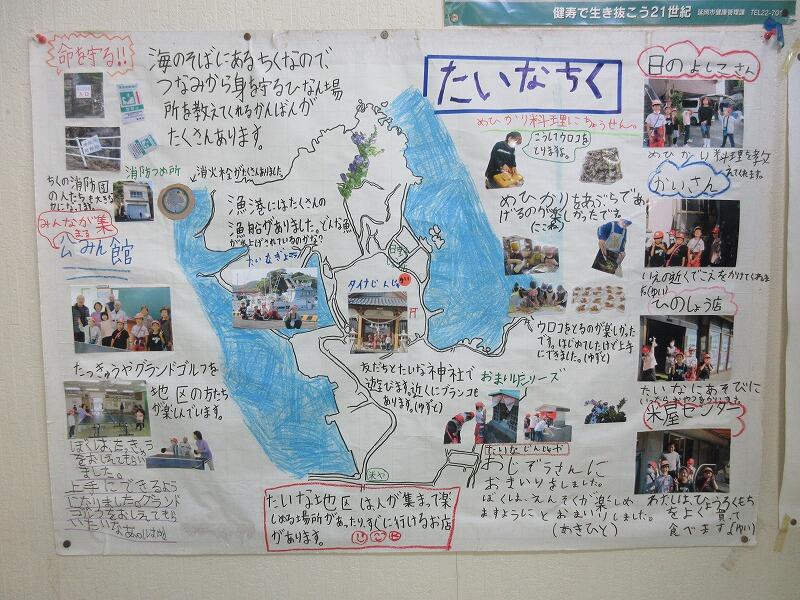 健寿で生き抜こう21世紀
延岡市健康管理課 TEL22-701
たいなちく
命を守る!!
海のそばにあるちくなので
つなみから身を守るひなん場
所を教えてくれるかんばんが
たくさんあります。
消防つめ所
消火栓がたくさんありました
ちくの消防団
の人たちも大きな
みんなが集
まる
公みん館
たっきゅうやグランドゴルフを
地区の方たち
が楽しんでいます。
ぼくは、たっきゅう
をおしえてもらい
ました。
上手にできるよう
になりました。グランド
ゴルフをおしえてもら
いたいな
漁港にはたくさんの
漁船がありました。どんな魚
が水上げされているのかな?
たいなぎょこう
タイナじんじゃ
友だちとたいな神社で
遊びます。近くにブランコも
あります。(ゆずと)
日の
米や
めひかり料理にちょうせん。
こうしてウロコを
とります。
めひかりをあぶらであ
げるのが楽しかったです
(にこね)
ウロコをとるのが楽しかった
です。はじめてしたけど上手
にできました。(ゆずと)
おまいりシリーズ
たいなじんじゃ
おじぞうさんに
おまいりをしました。
ぼくは、えんそくが楽しめ
ますようにとおまいりしました。
(あきひと)
たいな地区は人が集まって楽
しめる場所があったり、すぐに行けるお店
があります。
日のよしこさん
めひかり料理を教
えてくれます。
かいさん
いえの近くでこえをかけてくれま
(ゆい)
ひのしょう店
たいなにあそびに
米屋センター
わたしは、ひょうろくもち
をよく買って
食べます(ゆい)